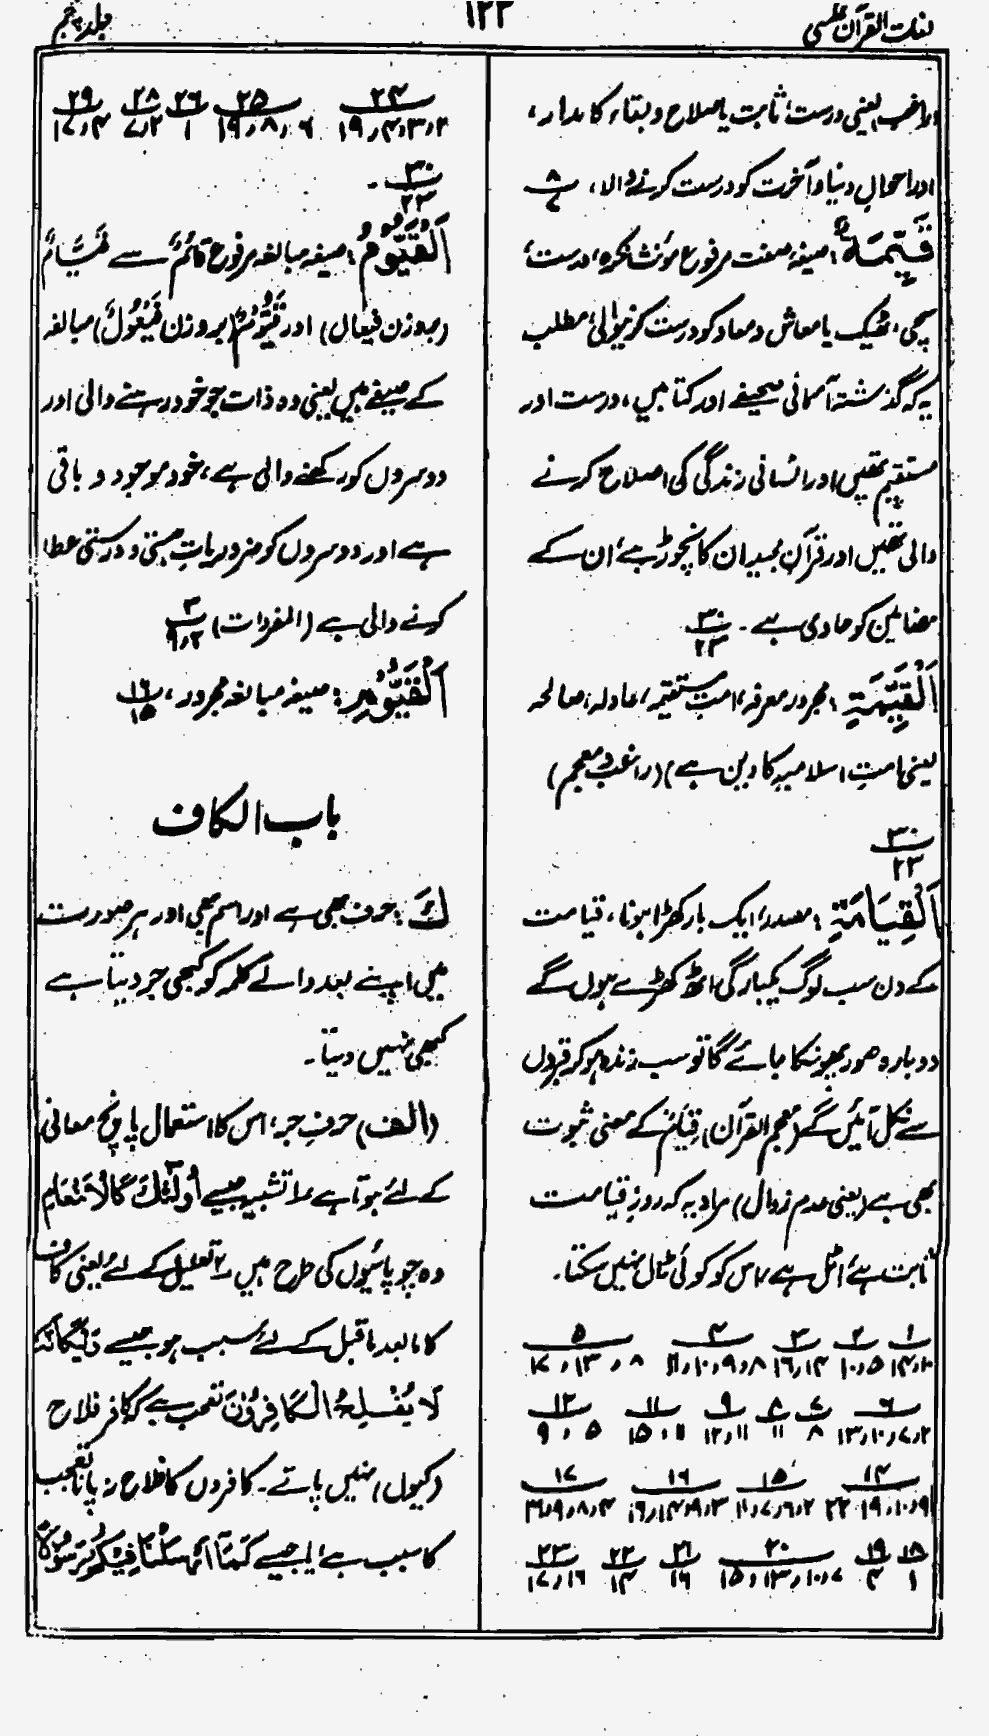 لغات القرآن عکسی
۱۲۲
جلد پنجم
راغب یعنی درست، ثابت یا صلاح و بقاء کا مدار،
اور احوالِ دنیا و آخرت کو درست کرنے والا، ۸/۷
قَيِّمَةٌ: صیغہ صفت مرفوع مؤنث نکرہ، درست،
سچی، ٹھیک یا معاش و معاد کو درست کرنیوالی، مطلب
یہ کہ گذشتہ آسمانی صحیفے اور کتابیں، درست اور
مستقیم تھیں اور انسانی زندگی کی اصلاح کرنے
والی تھیں اور قرآن مجید ان کا نچوڑ ہے، ان کے
مضامین کو حاوی ہے ۔ ۳۰/۲۳
اَلْقَيِّمَةِ: مجرور معرفہ، امتِ مستقیمہ، عادلہ، صالحہ
یعنی امتِ اسلامیہ کا دین ہے (راغب و معجم)
۳۰/۲۳
اَلْقِيَامَةِ: مصدر، ایک بار کھڑا ہونا، قیامت
کے دن سب لوگ یکبارگی اٹھ کھڑے ہوں گے
دوبارہ صور پھونکا جائے گا تو سب زندہ ہو کر قبروں
سے نکل آئیں گے (معجم القرآن) قِیَامٌ کے معنی ثبوت
بھی ہے (یعنی عدم زوال) مراد یہ کہ روزِ قیامت
ثابت ہے، اٹل ہے، اس کو کوئی ٹال نہیں سکتا۔
۱/۱۴،۱۰ ۲/۱۰،۵ ۳/۱۶،۱۴ ۴/۱۱،۱۰،۹،۸ ۵/۱۷،۱۳،۸
۶/۱۳،۱۰،۷،۲ ۷/۸ ۸/۱۱ ۹/۱۲،۱۱ ۱۱/۱۵،۱۱ ۱۲/۹،۵
۱۴/۲۲،۱۹،۱۰،۹ ۱۵/۱۱،۷،۶،۲ ۱۶/۱۶،۱۴،۹،۳ ۱۷/۹،۸،۴
۱۸/۱ ۱۹/۴ ۲۰/۱۵،۱۳،۱۰،۷ ۲۱/۱۶ ۲۲/۱۴ ۲۳/۱۷،۱۶
۲۴/۱۹،۴،۳،۲ ۲۵/۱۹،۸،۶ ۲۶/۱ ۲۸/۷،۲ ۲۹/۱۷،۴
۳۰/۲۲ ۔
اَلْقَيُّوْمُ: صیغہ مبالغہ مرفوع قَائِمٌ سے قَيَّامٌ
(بروزن فیعال) اور قَيُّوْمٌ (بروزن فَيْعُوْلٌ) مبالغہ
کے صیغے ہیں یعنی وہ ذات جو خود رہنے والی اور
دوسروں کو رکھنے والی ہے، خود موجود و باقی
ہے اور دوسروں کو ضروریاتِ ہستی و درستی عطا
کرنے والی ہے (المفردات) ۳/۹،۲
اَلْقَيُّوْمِ: صیغہ مبالغہ مجرور، ۱۶/۱۵
باب الکاف
كَ: حرف بھی ہے اور اسم بھی اور ہر صورت
میں اپنے بعد والے کلمہ کو کبھی جر دیتا ہے
کبھی نہیں دیتا۔
(الف) حرفِ جر، اس کا استعمال پانچ معانی
کے لئے ہوتا ہے ۱ تشبیہ جیسے اُولٰٓئِكَ كَالْاَنْعَامِ
وہ چوپائیوں کی طرح ہیں ۲ تعلیل کے لئے یعنی کاف
کا مابعد ماقبل کے لئے سبب ہو جیسے وَيْكَاَنَّهٗ
لَا يُفْلِحُ الْكَافِرُوْنَ تعجب ہے کہ کافر فلاح
(کیوں) نہیں پاتے۔ کافروں کا فلاح نہ پانا تعجب
کا سبب ہے ایسے كَمَآ اَرْسَلْنَا فِيْكُمْ رَسُوْلًا